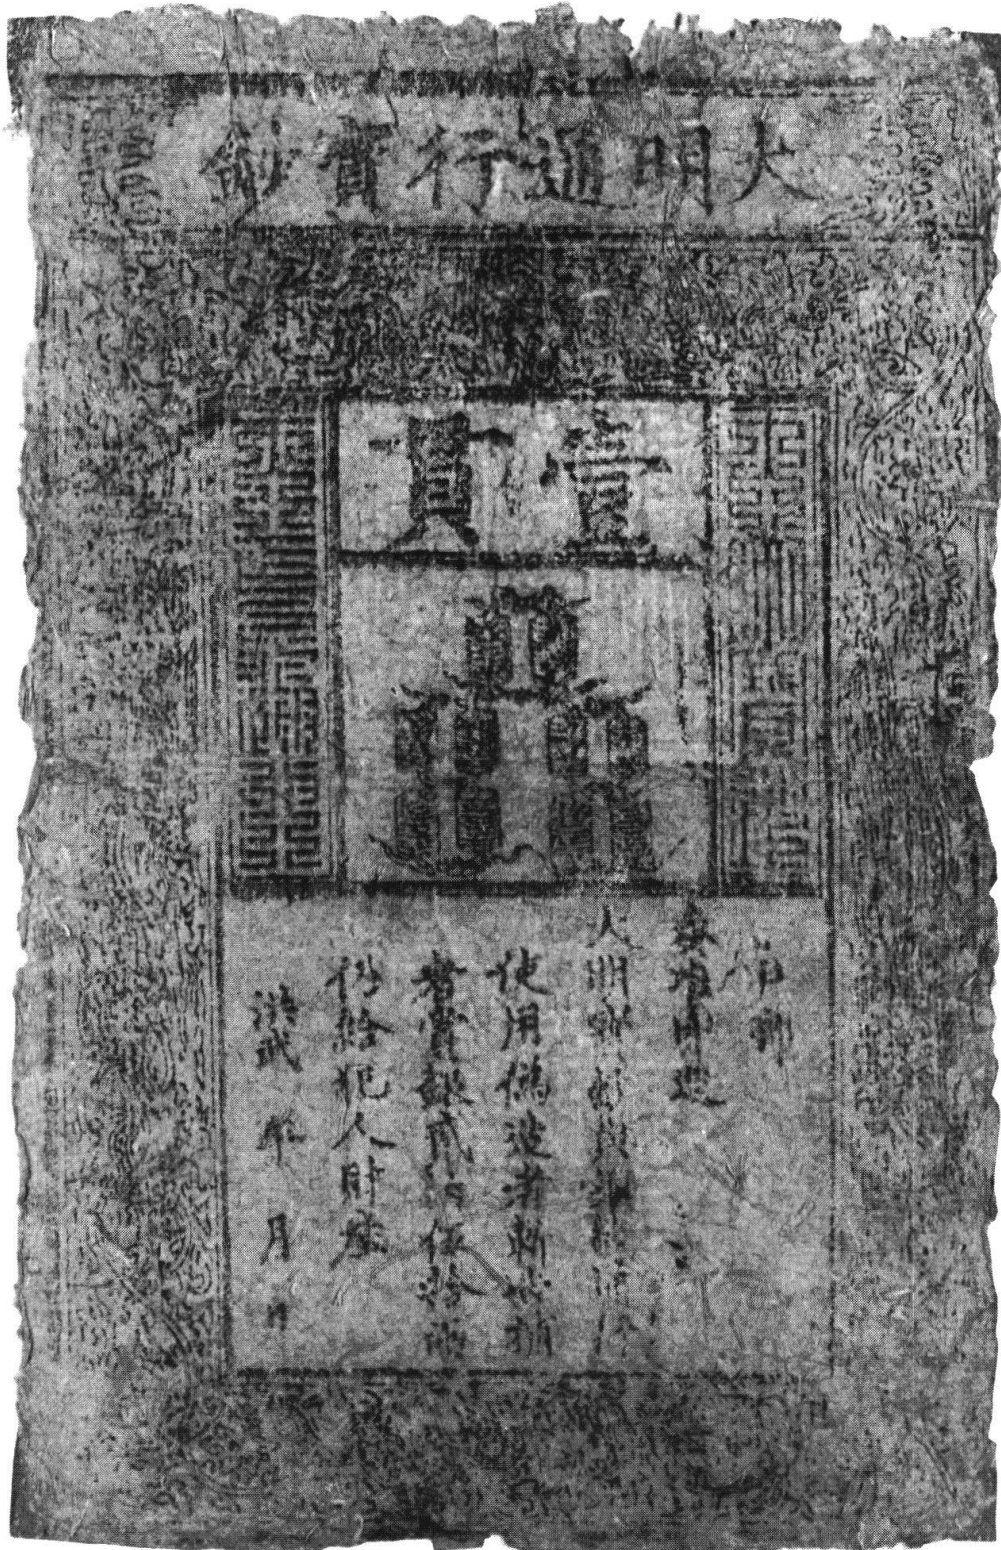 大明通行寶鈔
壹貫
戶部
奏准印造
大明寶鈔與銅錢通行
使用偽造者斬告捕
者賞銀兩
仍給犯人財產
洪武 年 月 日